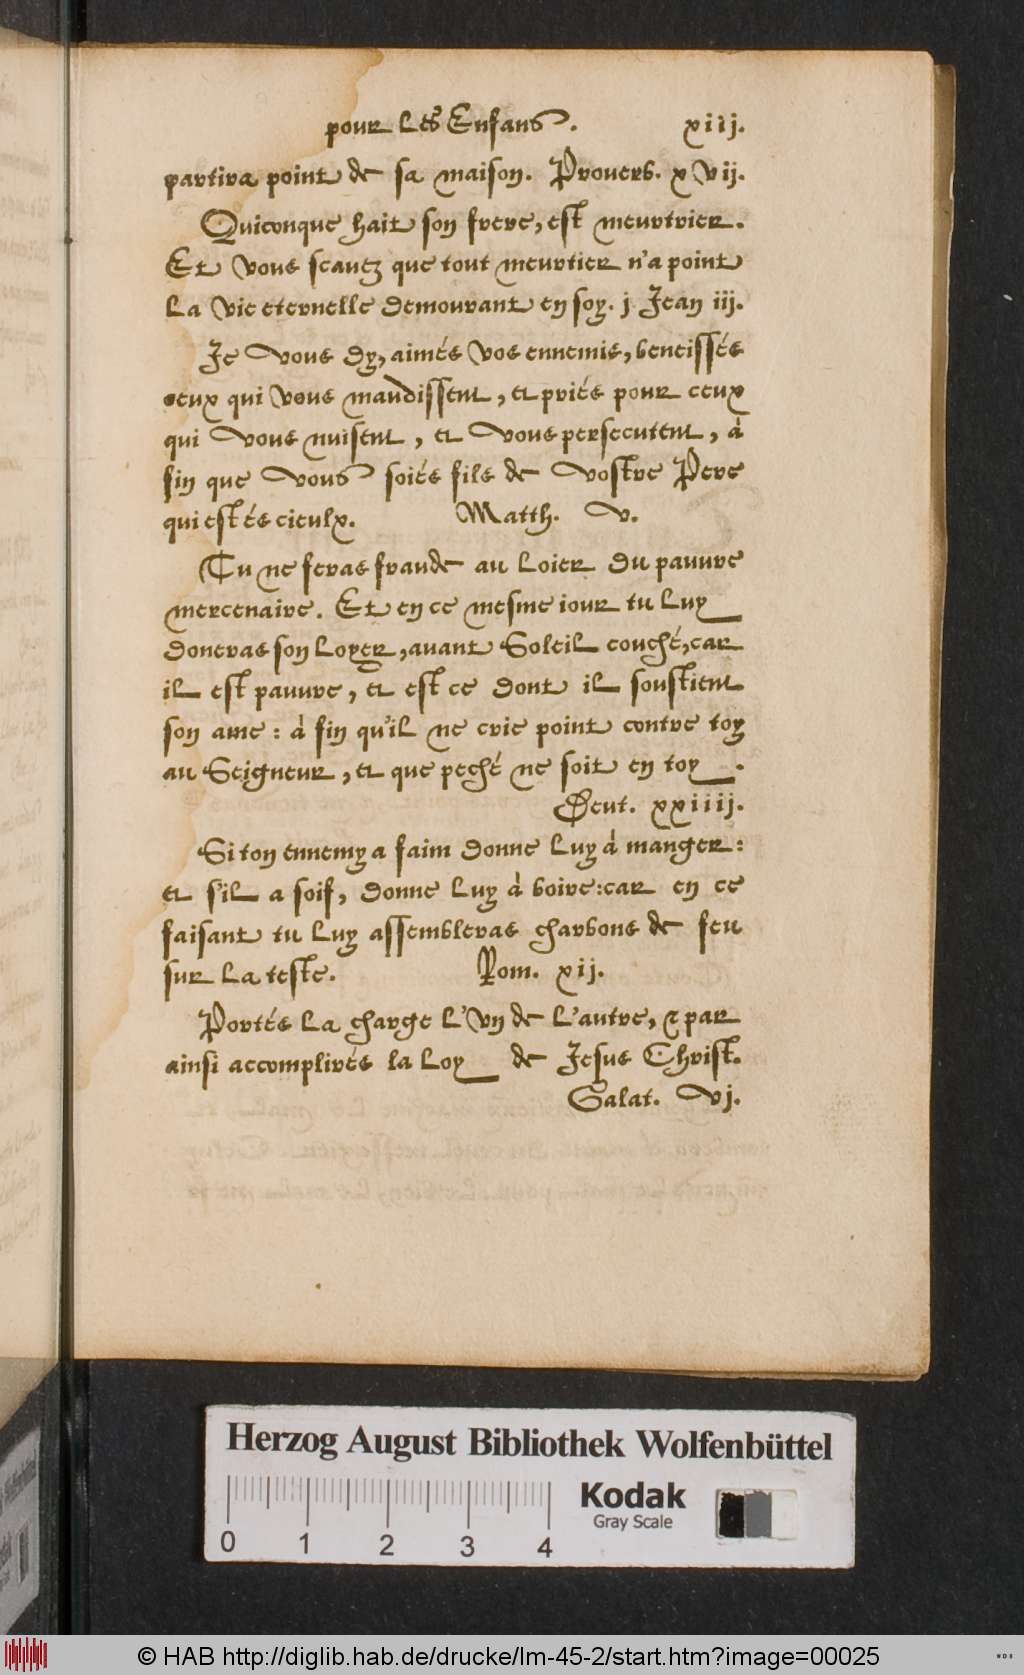 pour les Enfans. xiij.
partira point de sa maison. Proverb. xvij.
Quiconque hait son frere, est meurtrier.
Et vous scavez que tout meurtier n'a point
la vie eternelle demourant en soy. j. Jean iij.
Je vous dy, aimés vos ennemis, beneissés
ceux qui vous maudissent, et priés pour ceux
qui vous nuisent, et vous persecutent, à
fin que vous soiés fils de vostre Pere
qui est és cieulx. Matth. v.
Tu ne feras fraude au loier du pauvre
mercenaire. Et en ce mesme iour tu luy
doneras son loyer, avant Soleil couché, car
il est pauvre, et est ce dont il soustient
son ame : à fin qu'il ne crie point contre toy
au Seigneur, et que peché ne soit en toy.
Deut. xxiiij.
Si ton ennemy a faim donne luy à manger :
et s'il a soif, donne luy à boire : car en ce
faisant tu luy assembleras charbons de feu
sur la teste. Rom. xij.
Portés la charge l'vn de l'autre, & par
ainsi accomplirés la loy de Jesus Christ.
Galat. vj.
Herzog August Bibliothek Wolfenbüttel
Kodak
Gray Scale
0 1 2 3 4
© HAB http://diglib.hab.de/drucke/lm-45-2/start.htm?image=00025